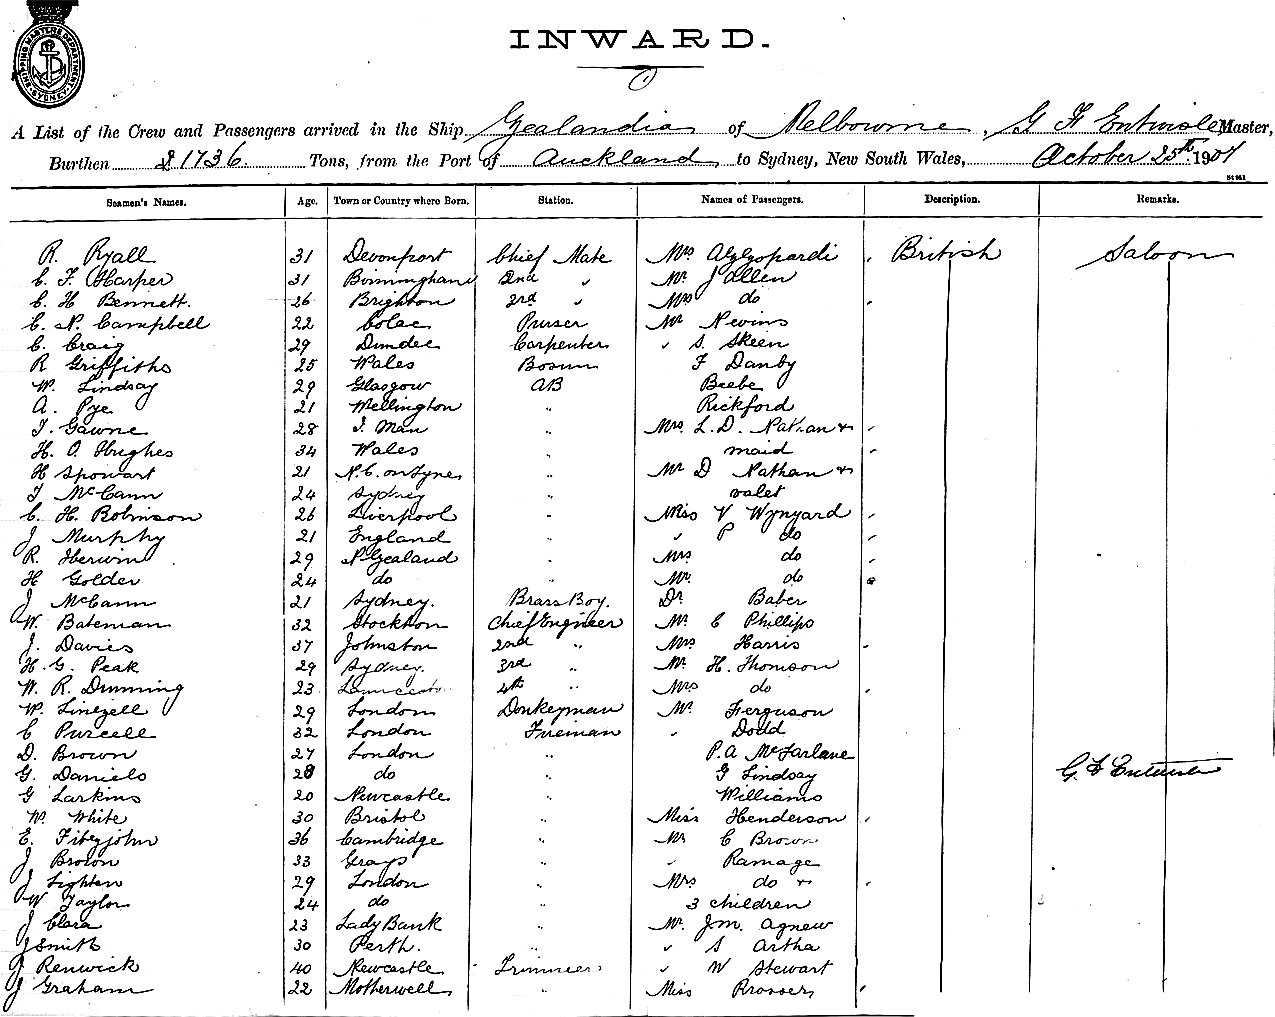 SHIPPING MASTER'S DEPARTMENT SYDNEY
INWARD.
1
A List of the Crew and Passengers arrived in the Ship Zealandia of Melbourne, G F Entwisle Master,
Burthen 1736 Tons, from the Port of Auckland to Sydney, New South Wales, October 25th 1901
Seamen's Names. Age. Town or Country where Born. Station. Names of Passengers. Description. Remarks.
R. Ryall 31 Devonport Chief Mate Mrs Alyyopardi British Saloon
C. F. Harper 31 Birmingham 2nd " Mr J Allen
C. H Bennett. 26 Brighton 3rd " Mrs do
C. N. Campbell 22 Colac Purser Mr Nevins
C. Craig 29 Dundee Carpenter " S. Skeen
R Griffiths 25 Wales Bosun F Danby
W. Lindsay 29 Glasgow AB Beebe
A. Pye 21 Wellington " Rickford
J. Gawne 28 I. Man " Mrs. L. D. Nathan &
H. O. Hughes 34 Wales " maid
H Spowart 21 N. C. on Tyne " Mr D Nathan &
J McCann 24 Sydney " valet
C. H. Robinson 26 Liverpool " Miss V Wynyard
J Murphy 21 England " " P do
R. Herwin 29 N Zealand " Mrs do
H Golder 24 do " Mr. do
J McCann 21 Sydney. Brass Boy. Dr Baber
W. Bateman 32 Stockton Chief Engineer Mr C Phillips
J. Davies 37 Johnston 2nd " Mrs Harris
H. G. Peak 29 Sydney. 3rd " Mr. H. Thomson
W. R. Dimming 23 Launceston 4th " Mrs do
W. Linezell 29 London Donkeyman Mr Ferguson
C Purcell 32 London Fireman " Dodd
D. Brown 27 London " P. A. McFarlane
G. Daniels 28 do " G Lindsay G. F Entwisle
G Larkins 20 Newcastle " Williams
W. White 30 Bristol " Miss Henderson
E. Fitzjohn 36 Cambridge " Mr C Brown
J Brown 33 Grays " " Ramage
J Lighten 29 London " Mrs do &
W Taylor 24 do " 3 children
J Clara 23 Lady Bank " Mr. J.M. Agnew
J Smith 30 Perth. " " S Artha
J Renwick 40 Newcastle Trimmer " W Stewart
J Graham 22 Motherwell " Miss Prosser